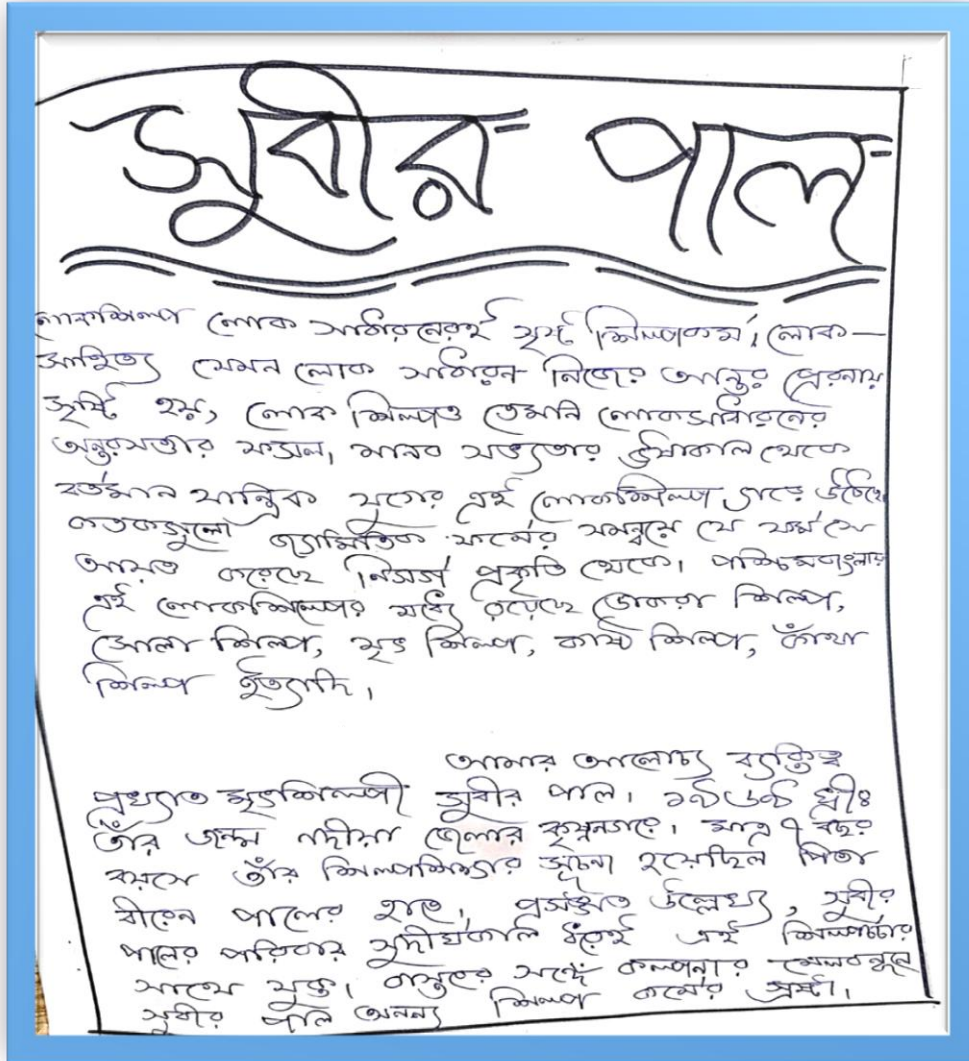 সুবীর পাল
লোকশিল্প লোক সাধারনেরই সৃষ্ট শিল্পকর্ম। লোক-
সাহিত্য যেমন লোক সাধারন নিজের আন্তর প্রেরনায়
সৃষ্টি হয়, লোক শিল্পও তেমনি লোকসাধারনের
অন্তরসত্তার ফসল। মানব সভ্যতার ঊষাকাল থেকে
বর্তমান যান্ত্রিক যুগের এই লোকশিল্প গড়ে উঠেছে
কতকগুলো জ্যামিতিক ফর্মের সমন্বয়ে যে ফর্ম সে
আয়ত্ত করেছে নিসর্গ প্রকৃতি থেকে। পশ্চিমবাংলার
এই লোকশিল্পের মধ্যে রয়েছে ডোকরা শিল্প,
সোলা শিল্প, মৃৎ শিল্প, কাষ্ঠ শিল্প, কাঁথা
শিল্প ইত্যাদি।
আমার আলোচ্য ব্যক্তিত্ব
প্রখ্যাত মৃৎশিল্পী সুবীর পাল। ১৯৬৯ খ্রীঃ
তাঁর জন্ম নদীয়া জেলার কৃষ্ণনগরে। মাত্র ৭ বছর
বয়সে তাঁর শিল্পশিক্ষার সূচনা হয়েছিল পিতা
বীরেন পালের হাতে। প্রসঙ্গত উল্লেখ্য, সুবীর
পালের পরিবার সুদীর্ঘকাল ধরেই এই শিল্পচর্চার
সাথে যুক্ত। বাস্তবের সঙ্গে কল্পনার মেলবন্ধনে
সুবীর পাল অনন্য শিল্প কর্মের স্রষ্টা।